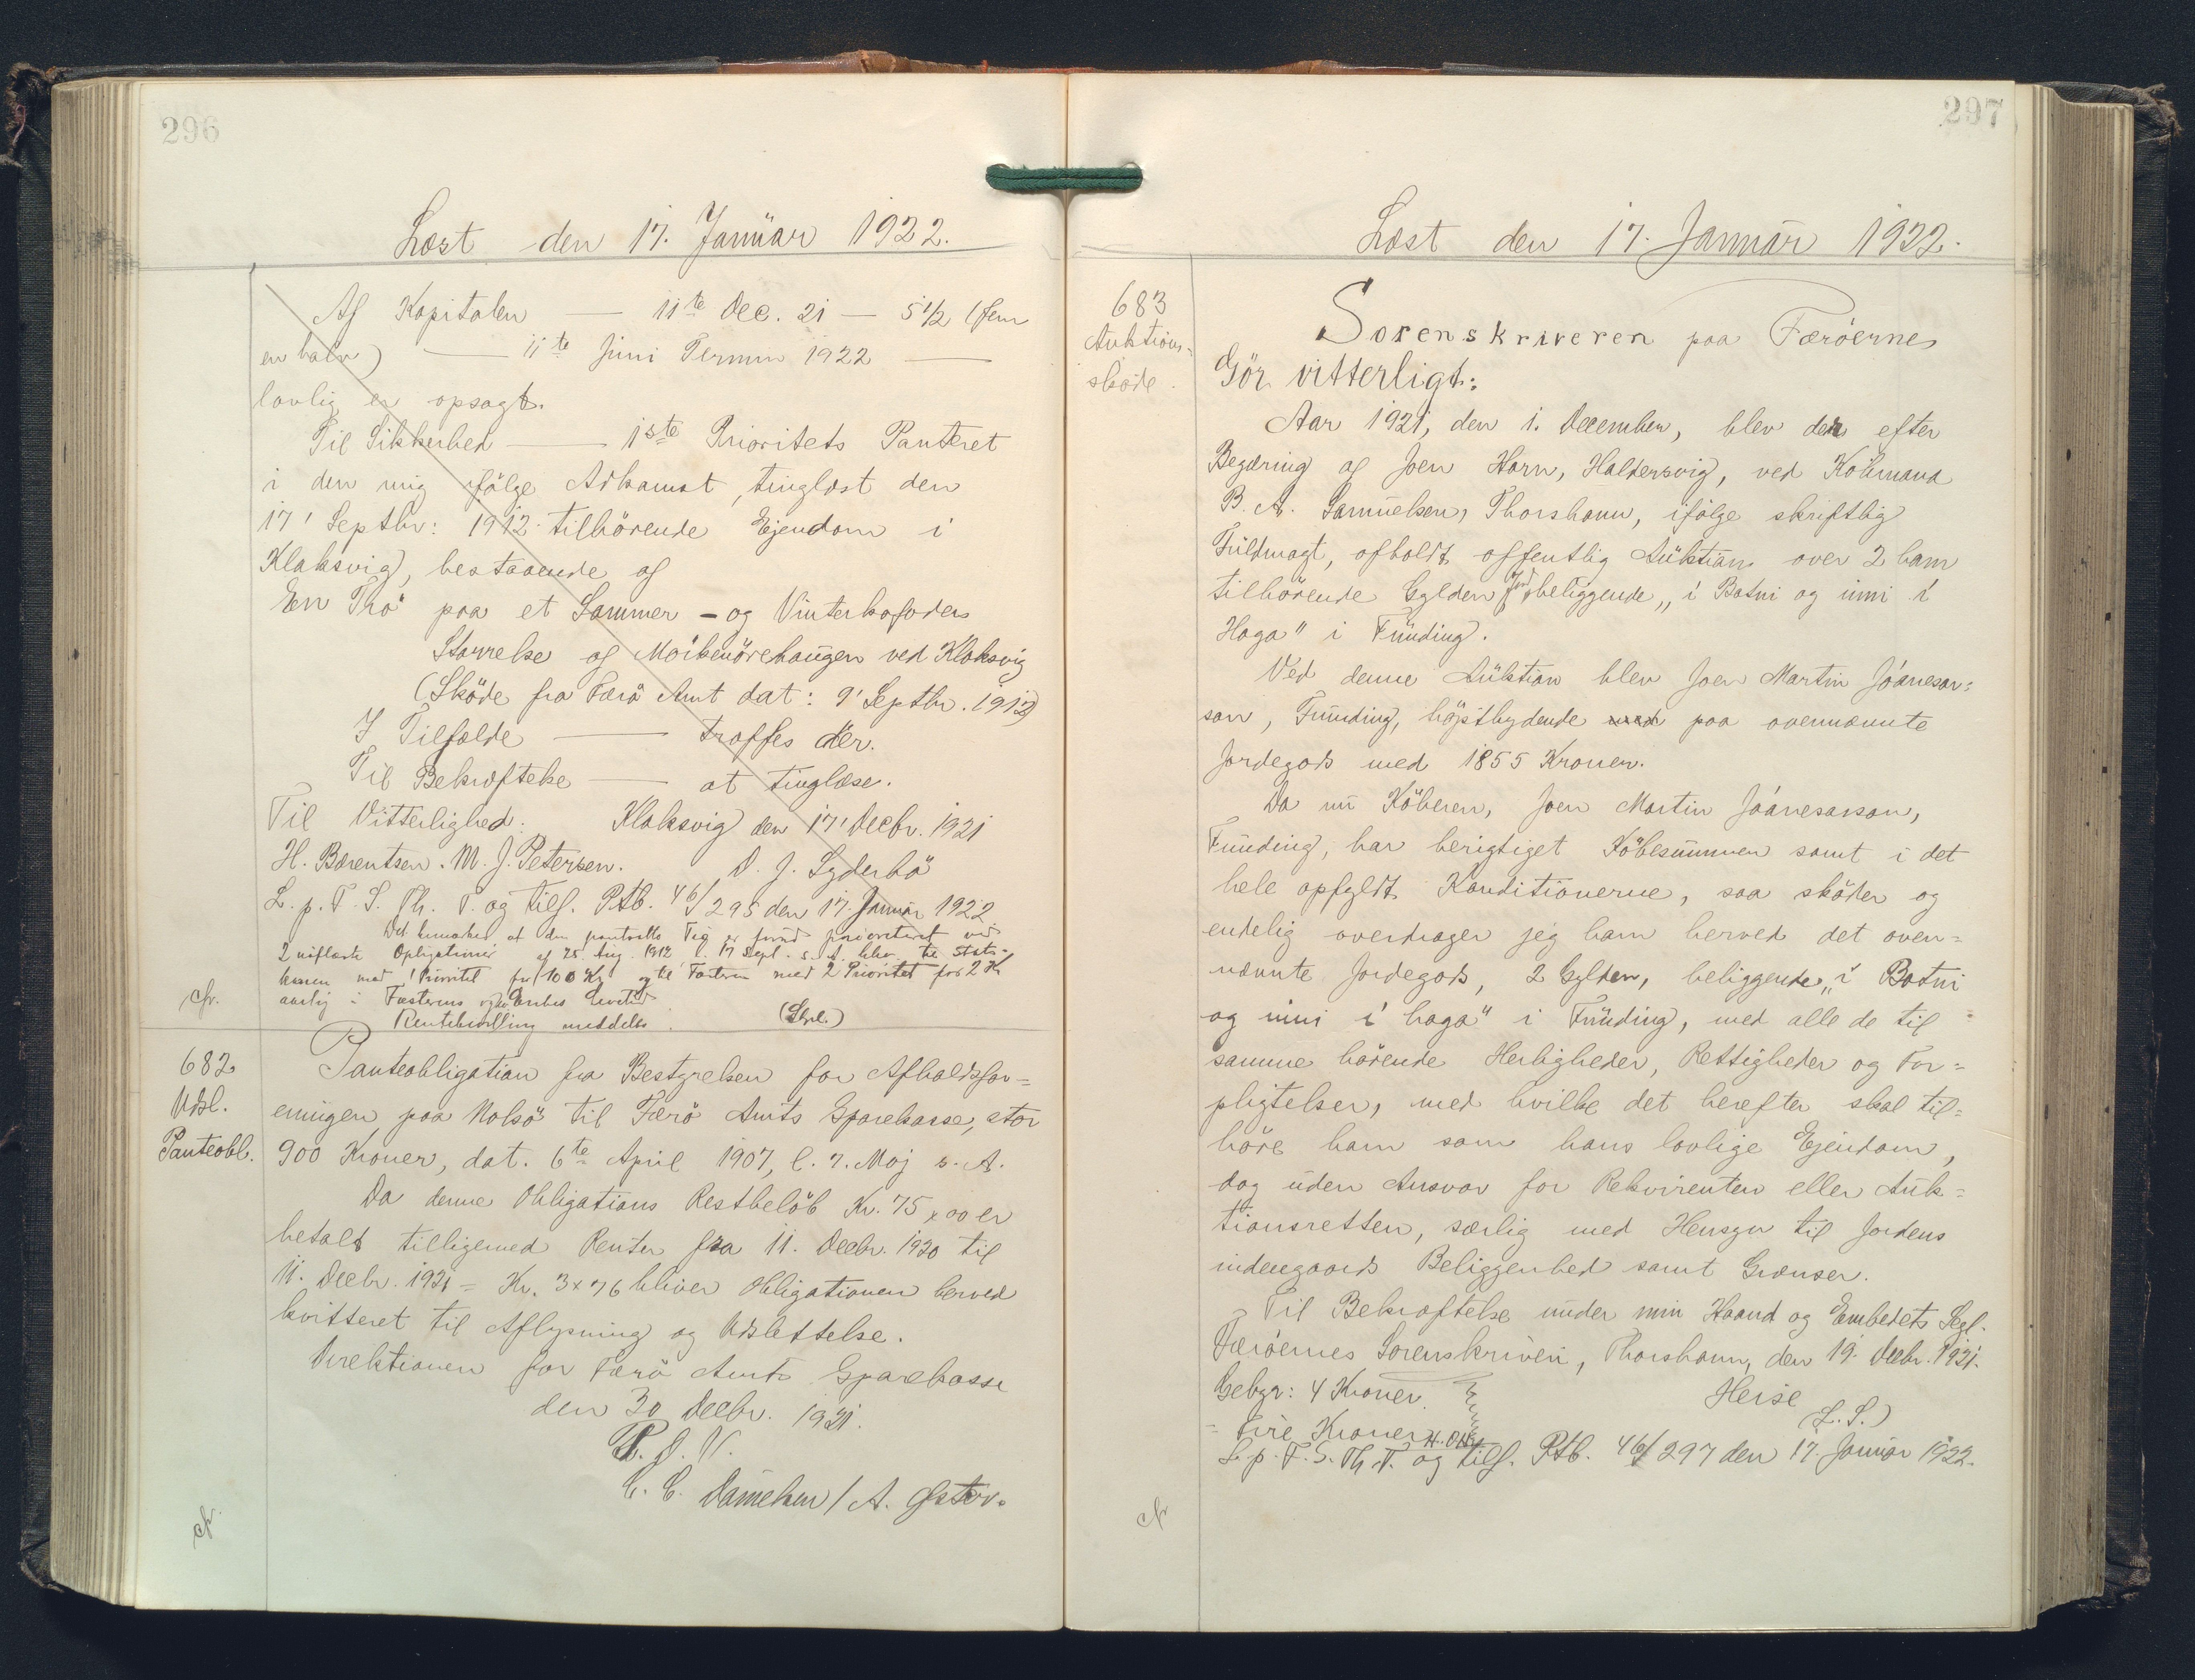 296
Læst den 17. Januar 1922.
Af Kapitalen — 11te Dec. 21 — 5 1/2 (fem
en halv) — 11te Juni Termin 1922 —
lovlig er opsagt.
Til Sikkerhed — 1ste Prioritets Panteret
i den mig ifølge Adkomst, tinglæst den
17' Septbr: 1912 tilhörende Ejendom i
Klaksvig, bestaaende af
En Trö paa et Sommer- og Vinterkofoders
Størrelse af ved Klaksvig
(Sköde fra Færö Amt dat: 9' Septbr. 1912)
I Tilfælde — træffes der.
Til Bekræftelse — at tinglæse.
Til Vitterlighed: Klaksvig den 17' Decbr. 1921
H. Bærentsen. M. J. Petersen. D. J. Lyderbö
L. p. F. S. Th. T. og tilf. Ptb. 46/295 den 17. Januar 1922
Det bemærkes at den pantsatte Teig er forud prioriteret ved
2 Obligationer af 25. Aug. 1912 l. 17 Sept. s. A. til Stats-
kassen med 1 Prioritet for 100 Kr og til med 2 Prioritet for 2 Kr
aarlig i Fæsterens og Enkes Levetid
cfr.
Rentebevilling meddelt. (Skrl.)
682
Udsl.
Panteobl.
Panteobligation fra Bestyrelsen for Afholdsfor=
eningen paa Nolsö til Færö Amts Sparekasse, stor
900 Kroner, dat. 6te April 1907, l. 7. Maj s. A.
Da denne Obligations Restbelöb Kr. 75 x 00 er
betalt tilligemed Renter fra 11. Decbr. 1920 til
11. Decbr. 1921 = Kr. 3 x 76 bliver Obligationen herved
kvitteret til Aflysning og Udslettelse.
Direktionen for Færö Amts Sparekasse
den 30 Decbr. 1921.
P. D. V.
C. C. Danielsen / A. Øster.
cfr.
297
Læst den 17. Januar 1922.
683
Auktions=
sköde.
Sorenskriveren paa Færöerne
Gör vitterligt:
Aar 1921, den 1. December, blev der efter
Begæring af Joen Horn, Haldersvig, ved Köbmand
B. A. Samuelsen, Thorshavn, ifølge skriftlig
Fuldmagt, afholdt offentlig Auktion over 2 ham
tilhörende Gylden Jord beliggende „i Botni og inni i
Haga" i Funding.
Ved denne Auktion blev Joen Martin Jóanesar=
son, Funding, højstbydende med paa ovennævnte
Jordegods med 1855 Kroner.
Da nu Köberen, Joen Martin Jóanesarson,
Funding, har berigtiget Köbesummen samt i det
hele opfyldt Konditionerne, saa sköder og
endelig overdrager jeg ham herved det oven=
nævnte Jordegods, 2 Gylden, beliggende „i Botni
og inni i haga" i Funding, med alle de til
samme hörende Herligheder, Rettigheder og For=
pligtelser, med hvilke det herefter skal til=
höre ham som hans lovlige Ejendom,
dog uden Ansvar for Rekvirenten eller Auk=
tionsretten, særlig med Hensyn til Jordens
indengaards Beliggenhed samt Grænser.
Til Bekræftelse under min Haand og Embedets Segl.
Færöernes Sorenskriveri, Thorshavn, den 19. Decbr. 1921.
Gebyr: 4 Kroner. Heise
= Fire Kroner (L. S.)
L. p. F. S. Th. T. og tilf. Ptb. 46/297 den 17. Januar 1922.
cfr